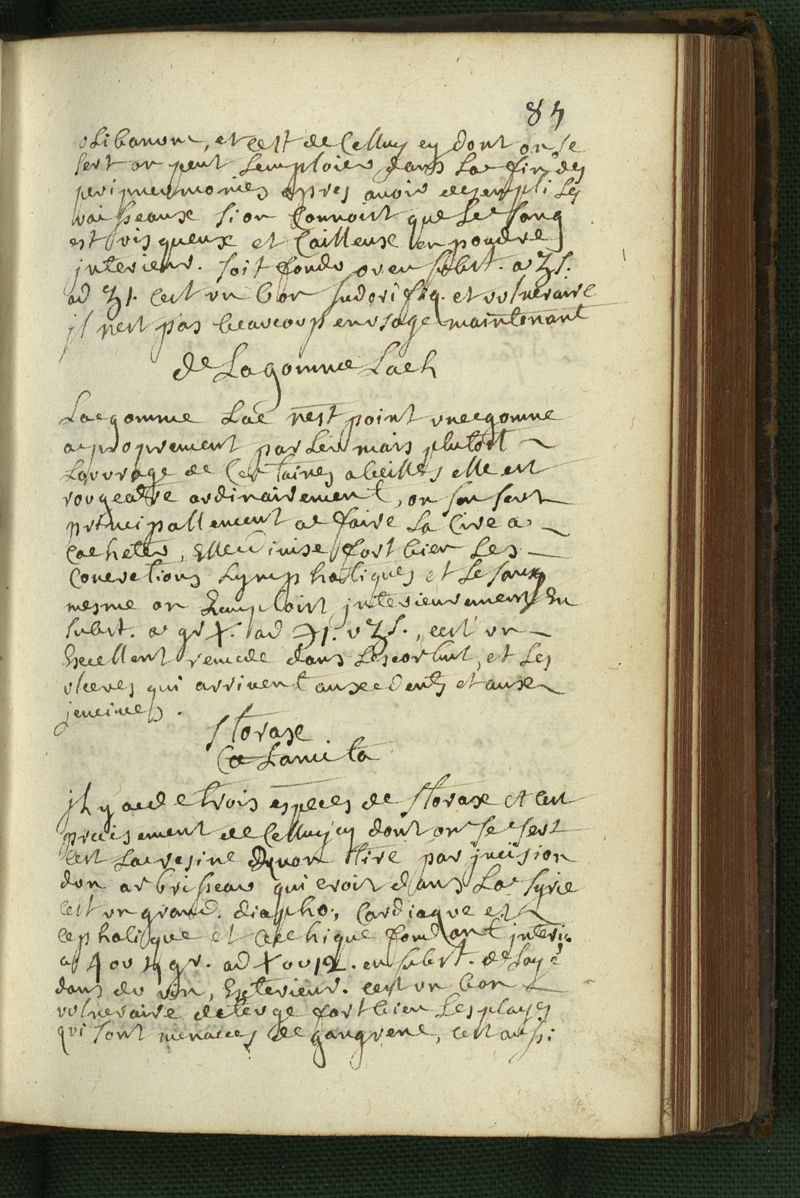 85
olibanum, et cest de Celluy cy dont on se
sert on peut Lemploier dans La fin des
peripneumonies apres avoir desempli Les
vaisseaux si on Connoist que Le sang
est visqueux et Cailleux en poudre
jnterieur. soit fondu ou en subst. a ʒs.
ad ʒ1. cest un bon sudorifiq. et vulneraire
jl nest pas beaucoup en usage maintenant
de La gomme Lach
La gomme Lac nest point une gomme
a proprement parler mais plutost
Louvrage de Certaines abeilles elle est
rougeatre ordinairement, on sen sert
principallement a faire La Cire a
Cacheter, Elle divise fort bien Les
Concretions Lymphatiques et Le sang
mesme on Lemploist jnterieurement En
subst. a gr x. ad ℈1. v ʒs., cest un
Excellent remede dans Lescorbut, et Les
ulceres qui arrivent aux dents et aux
jencives.
storax
Calamita
jl y a de trois especes de storax et cest
precisement de Celluy cy dont on se sert
cest La resine quon tire par jncision
dun arbrisseau qui croist dans La syrie
cest un grand. diapho., Cardiaque et
cephalique et fondant jnteri.
a 4 ou gr. ad x ou 12. en subst.
dans du vin, Exterieur. cest un bon
vulneraire deterge fort bien Les playes
qui sont menacees de gangrene, cest aussi